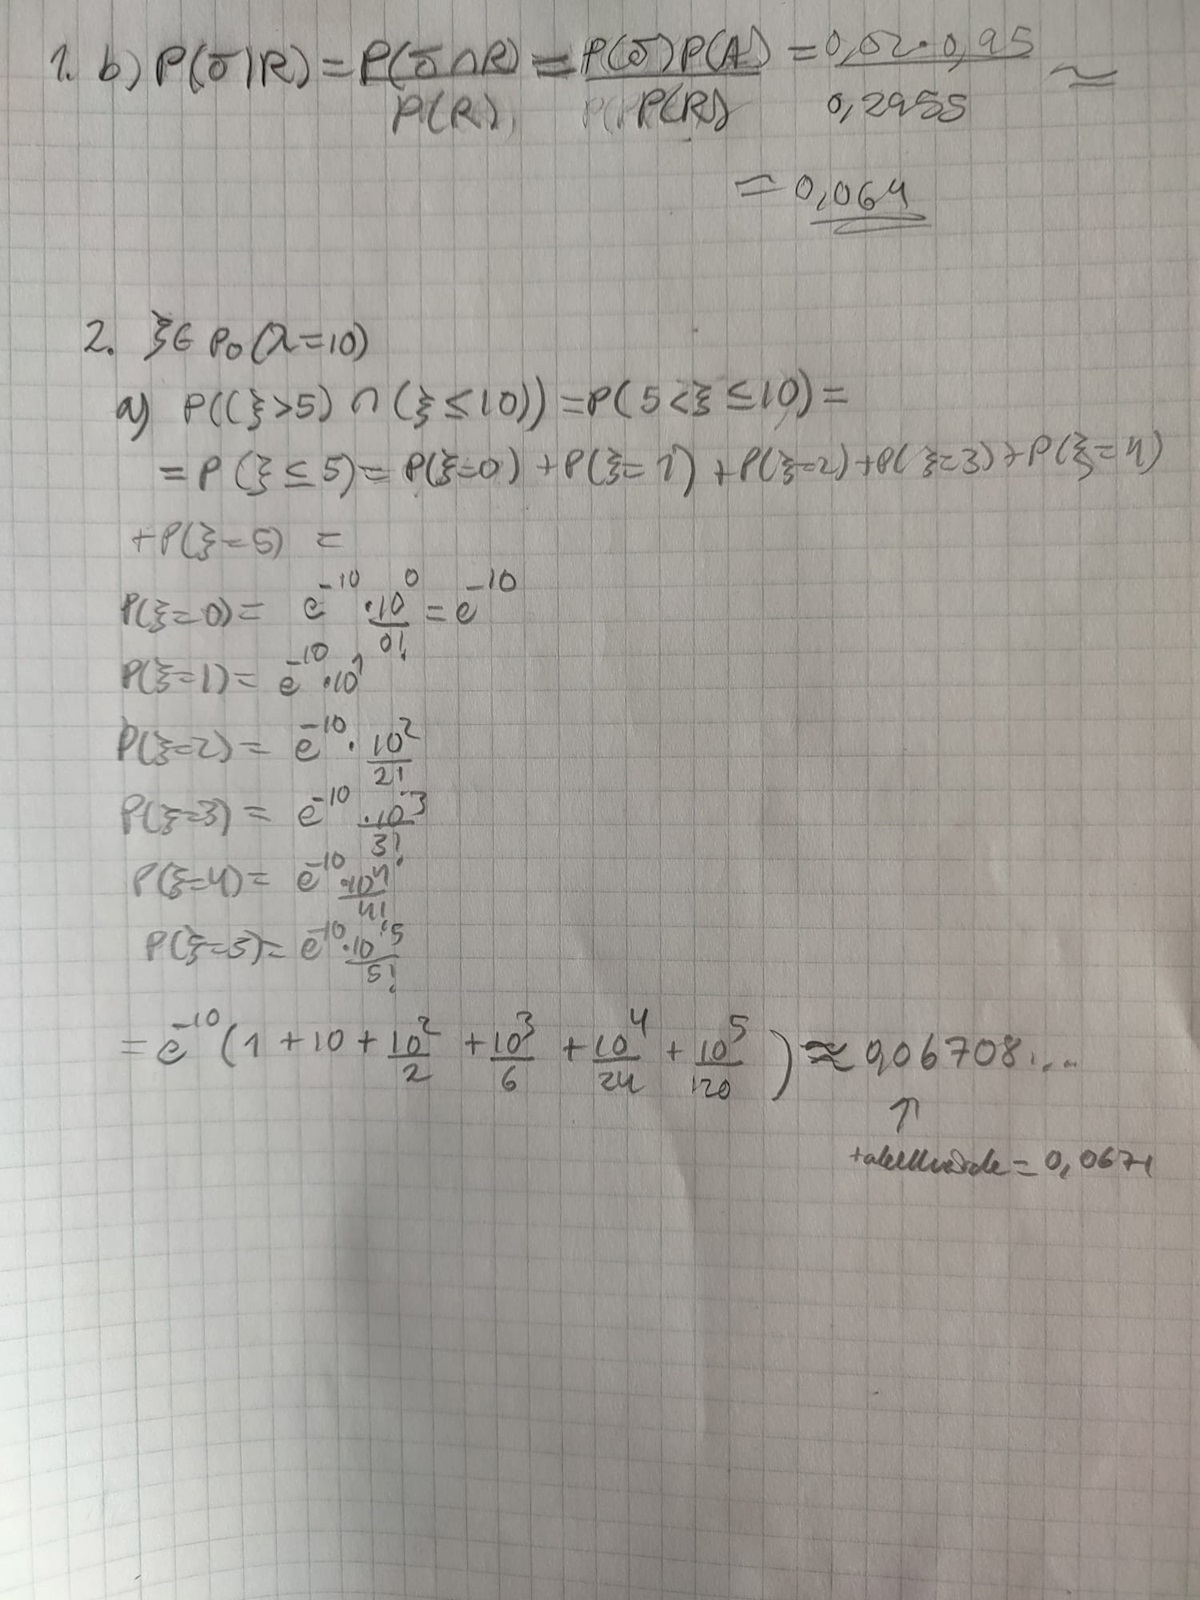 1. b) P(σ|R) = P(σ∩R)/P(R) = P(σ)P(A)/P(R) = 0,02·0,95/0,2955 ≈
= 0,064
2. ξ∈ Po(λ=10)
a) P((ξ>5) ∩ (ξ≤10)) = P(5<ξ≤10) =
= P(ξ≤5) = P(ξ=0) + P(ξ=1) + P(ξ=2) + P(ξ=3) + P(ξ=4)
+P(ξ=5) =
P(ξ=0) = e^-10 ·10^0/0! = e^-10
P(ξ=1) = e^-10 ·10^1
P(ξ=2) = e^-10 · 10^2/2!
P(ξ=3) = e^-10 ·10^3/3!
P(ξ=4) = e^-10 ·10^4/4!
P(ξ=5) = e^-10 ·10^5/5!
= e^-10 (1 + 10 + 10^2/2 + 10^3/6 + 10^4/24 + 10^5/120) ≈ 0,06708...
↑
= 0,0671